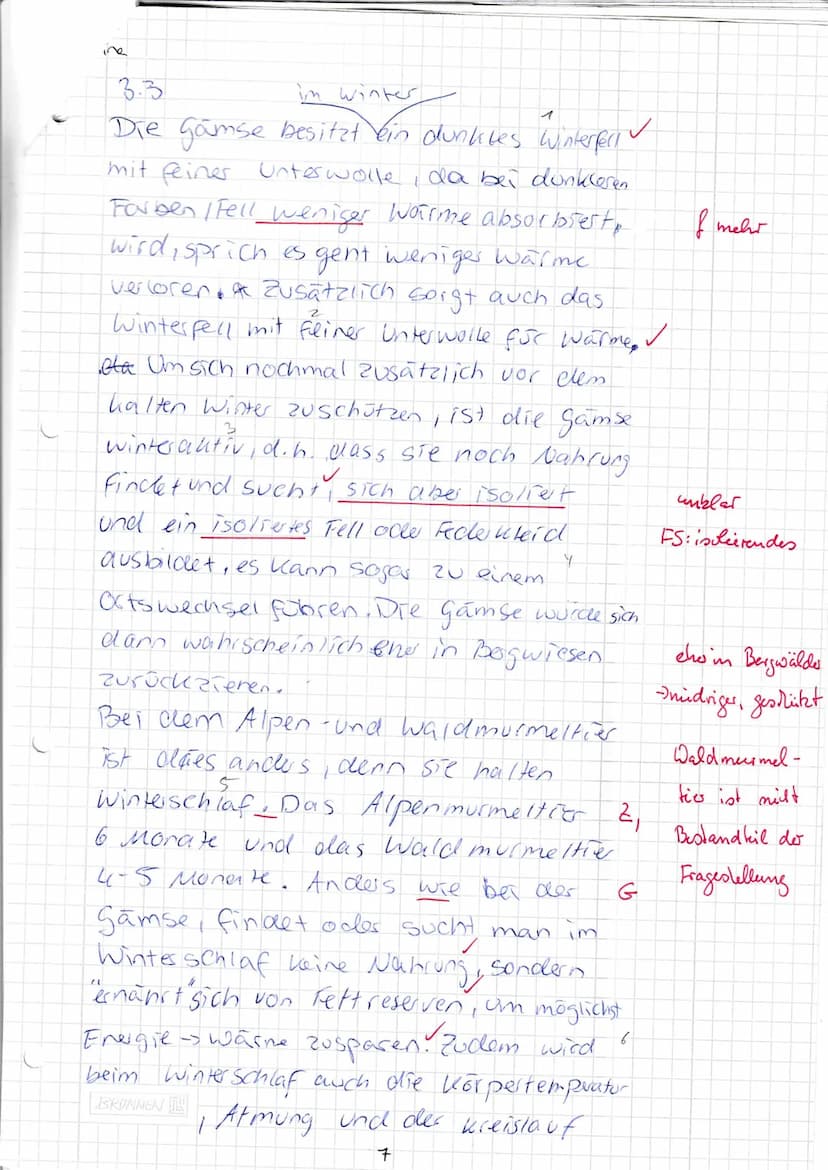 ine
3.3
im Winter
Die Gämse besitzt ein dunkles Winterfell ✓
mit feiner Unterwolle, da bei dunkleren
Farben/Fell weniger Wärme absorbiert, f mehr
wird, sprich es geht weniger Wärme
verloren. Zusätzlich sorgt auch das
Winterfell mit feiner Unterwolle für Wärme. ✓
Um sich nochmal zusätzlich vor dem
kalten Winter zuschützen, ist die Gämse
winteraktiv, d.h. dass sie noch Nahrung
findet und sucht, sich aber isoliert unklar
und ein isoliertes Fell oder Federkleid FS: isolierendes
ausbildet, es kann sogar zu einem
Ortswechsel führen. Die Gämse würde sich
dann wahrscheinlich eher in Bergwiesen eher in Bergwälder
zurückzieren. → niedriger, geschützt
Bei dem Alpen- und Waldmurmeltier
ist dies anders, denn sie halten Waldmurmel-
Winterschlaf. Das Alpenmurmeltier Z, tier ist nicht
6 Monate und das Waldmurmeltier Bestandteil der
4-5 Monate. Anders wie bei der G Fragestellung
Gämse, findet oder sucht man im
Winterschlaf keine Nahrung, sondern
"ernährt" sich von Fettreserven, um möglichst
Energie → Wärme zusparen. Zudem wird
beim Winterschlaf auch die Körpertemperatur
BRUNNEN
, Atmung und der Kreislauf
7